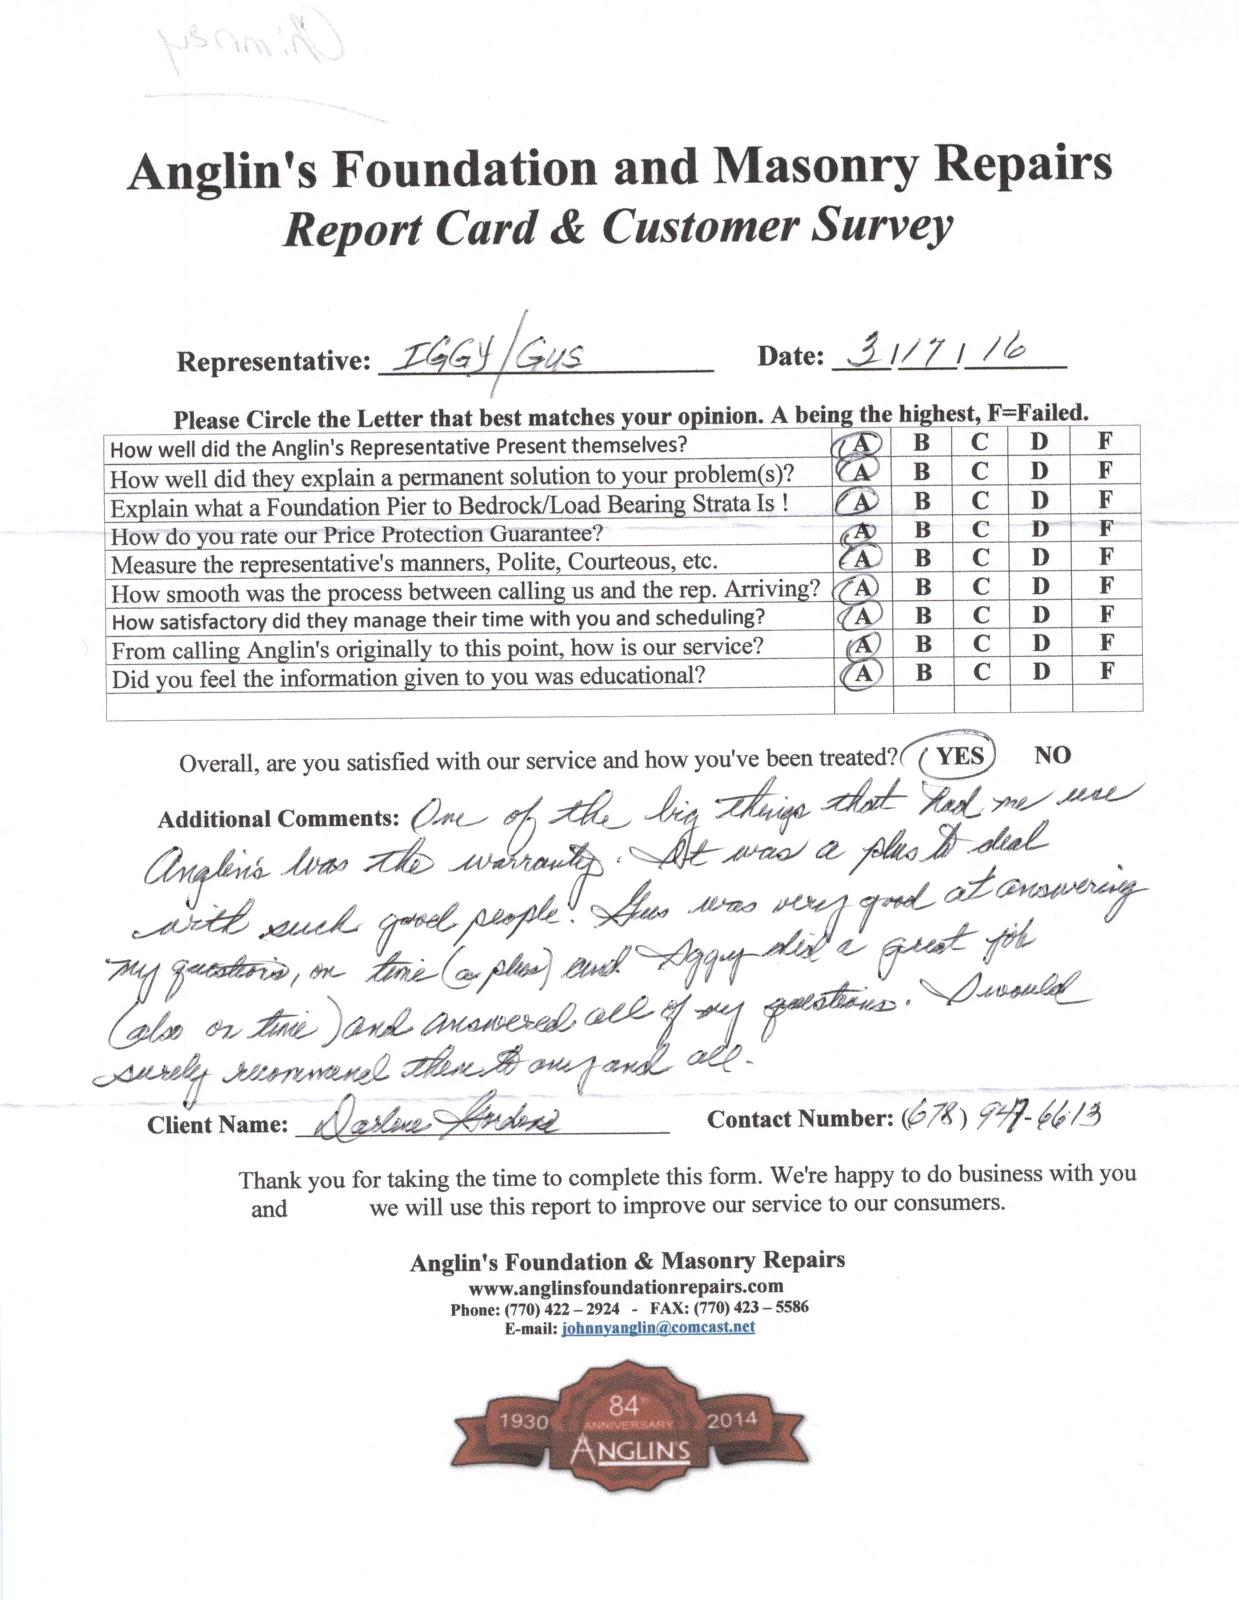 Chimney
Anglin's Foundation and Masonry Repairs
Report Card & Customer Survey
Representative: IGGY/GUS Date: 3/17/16
Please Circle the Letter that best matches your opinion. A being the highest, F=Failed.
How well did the Anglin's Representative Present themselves? A B C D F
How well did they explain a permanent solution to your problem(s)? A B C D F
Explain what a Foundation Pier to Bedrock/Load Bearing Strata Is ! A B C D F
How do you rate our Price Protection Guarantee? A B C D F
Measure the representative's manners, Polite, Courteous, etc. A B C D F
How smooth was the process between calling us and the rep. Arriving? A B C D F
How satisfactory did they manage their time with you and scheduling? A B C D F
From calling Anglin's originally to this point, how is our service? A B C D F
Did you feel the information given to you was educational? A B C D F
Overall, are you satisfied with our service and how you've been treated? YES NO
Additional Comments: One of the big things that had me use
Anglin's was the warranty. It was a plus to deal
with such good people. Gus was very good at answering
my questions, on time (a plus) and Iggy did a great job
(also on time) and answered all of my questions. I would
surely recommend them to any and all.
Client Name: Darlene Contact Number: (678) 947-6613
Thank you for taking the time to complete this form. We're happy to do business with you
and we will use this report to improve our service to our consumers.
Anglin's Foundation & Masonry Repairs
www.anglinsfoundationrepairs.com
Phone: (770) 422 – 2924 - FAX: (770) 423 – 5586
E-mail: johnnyanglin@comcast.net
84th
1930 ANNIVERSARY 2014
ANGLIN'S